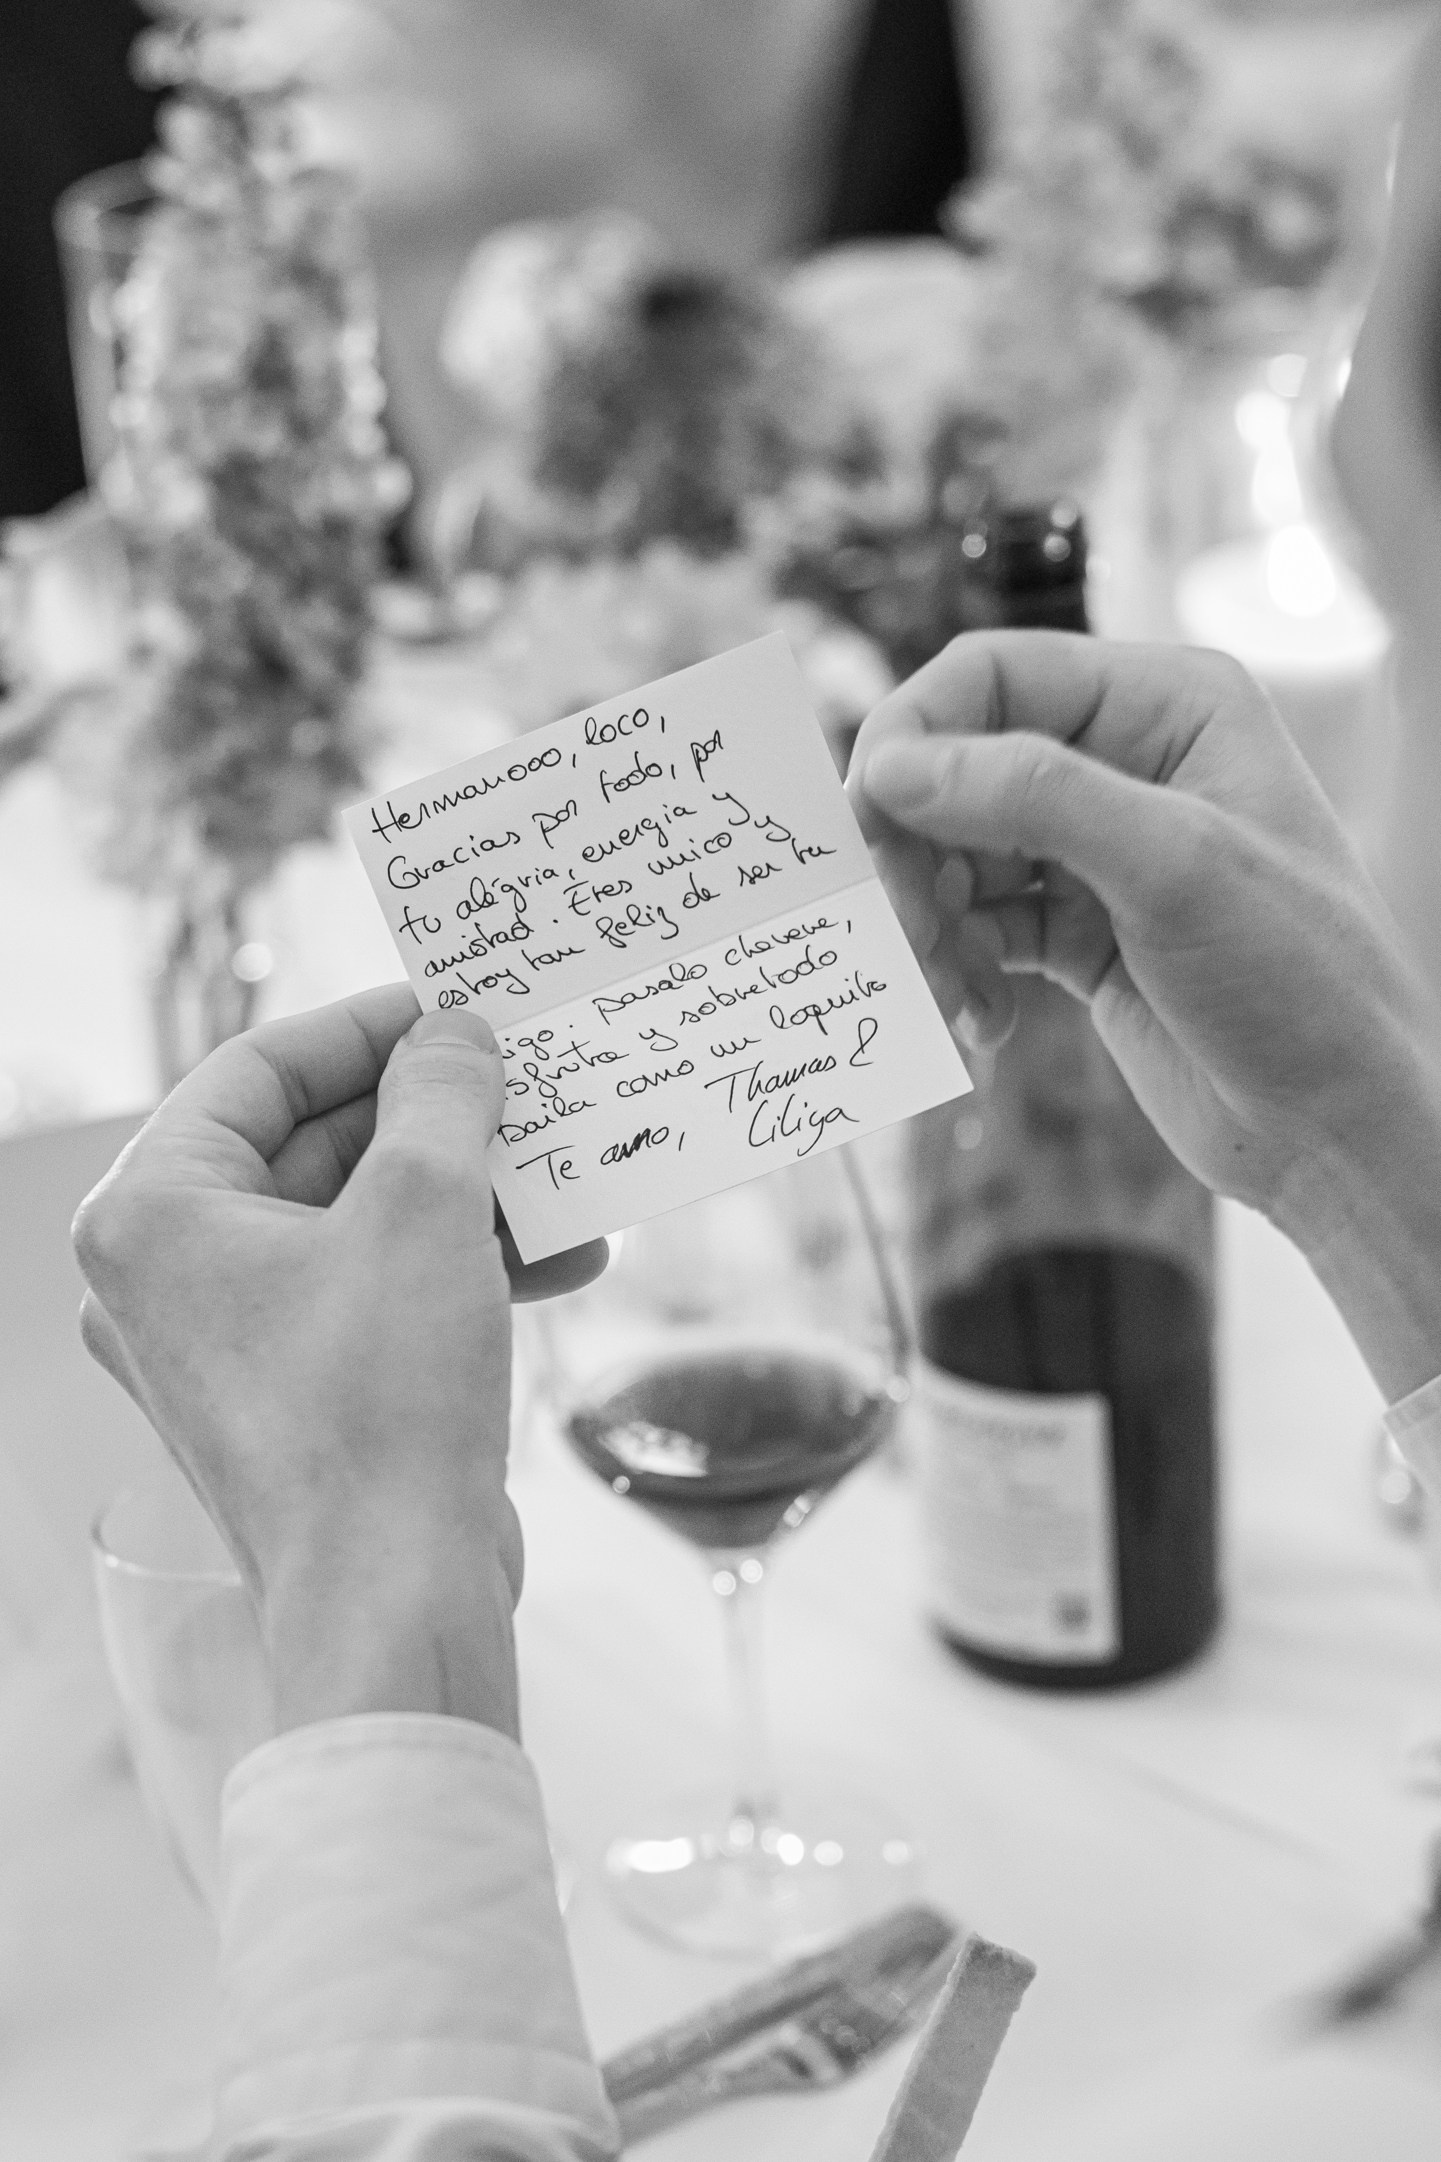 Hermanooo, loco,
Gracias por todo, por
tu alégria, energia y
amistad. Eres unico y
estoy tan feliz de ser tu
igo. pasalo chevere,
sfruta y sobretodo
baila como un loquito
Te amo, Thomas &
Liliya